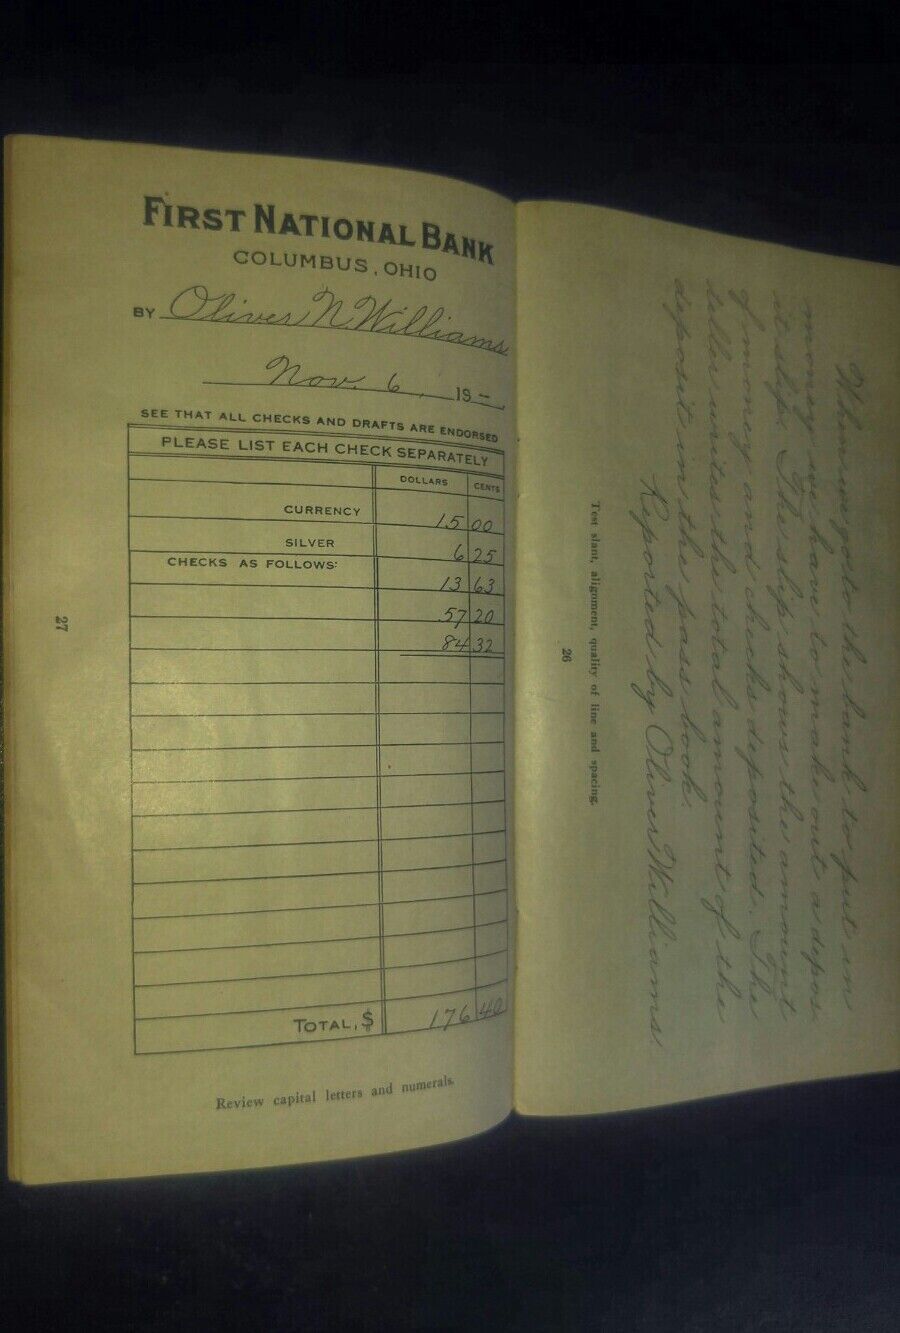 FIRST NATIONAL BANK
COLUMBUS, OHIO
BY Oliver N Williams
Nov. 6, 19–.
SEE THAT ALL CHECKS AND DRAFTS ARE ENDORSED
PLEASE LIST EACH CHECK SEPARATELY
DOLLARS CENTS
CURRENCY 15 00
SILVER 6 25
CHECKS AS FOLLOWS: 13 63
57 20
84 32
TOTAL, $ 176 40
Review capital letters and numerals.
27
When we go to the bank to put in
money we have to make out a depos
it slip. The slip shows the amount
of money and checks deposited. The
teller writes the total amount of the
deposit in the pass book.
Reported by Oliver Williams.
Test slant, alignment, quality of line and spacing.
26